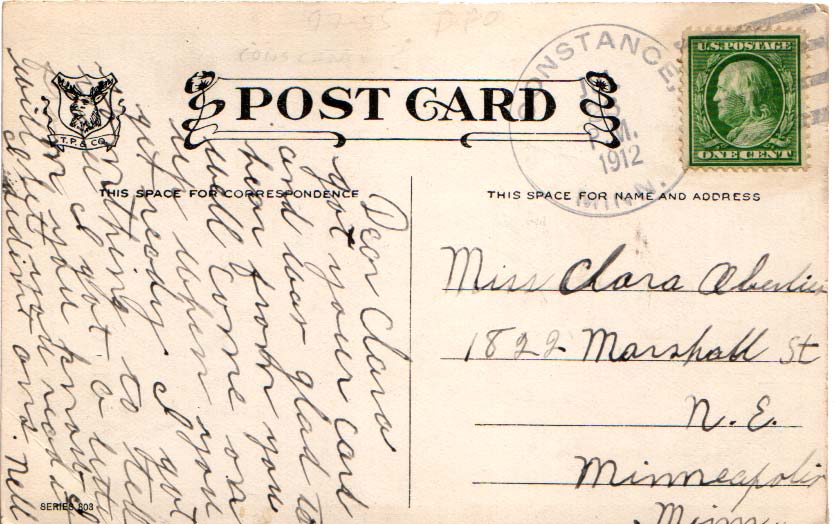 97-55 DPO
CONSTANCE,
P.M.
1912
MINN.
U.S. POSTAGE
ONE CENT
T.P. & CO.
POST CARD
THIS SPACE FOR CORRESPONDENCE
THIS SPACE FOR NAME AND ADDRESS
Dear Clara
got your card
and was glad to
hear from you
will come on
when you
get ready. I got
to tell
I got a letter
for you
let you read
and. Nell
Miss Clara
1822 Marshall St
N. E.
Minneapolis
Minn
SERIES 803